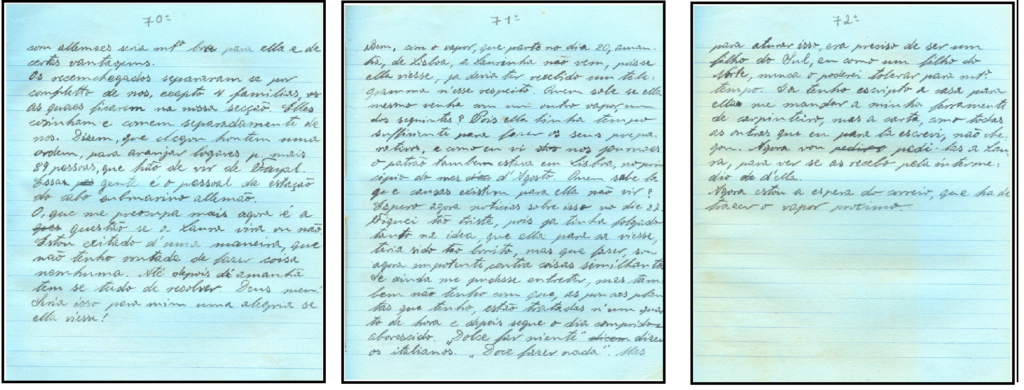 70º
com allemães seria mtº boa para ella e de
certas vantagens.
Os recemchegados separaram se por
completto de nos, excepto 4 familias,
as quaes ficaram na nossa secção. Elles
cosinham e comem separadamente de
nos. Dizem, que chegou hontem uma
ordem, para aranjar logares p. mais
89 pessoas, que hão de vir de Fayal.
Essas gente é o pessoal da estação
do cabo submarino allemão.
O, que me preocupa mais agora é a
questão se a Laura vira ou não
Estou exitado d'uma maneira, que
não tenho vontade de faser coisa
nemhuma. Até depois de amanhã
tem se tudo de resolver. Deus meu!
Seria isso para mim uma alegria se
ella viesse!
71º
Bem, com o vapor, que parte no dia 20, aman-
hã, de Lisboa, a Laurinha não vem, pois se
ella viesse, ja devia ter recebido um tele-
gramma n'esse respeito. Quem sabe se ella
mesmo venha com um outro vapor, um
dos seguintes? Pois ella tinha tempo
sufficiente para faser os seus prepa-
rativos, e como eu vi nos jornaes
o patrão tambem estava em Lisboa, no prin-
cipio do mes d'Agosto. Quem sabe la
que causas existem para ella não vir?
Espero agora noticias sobre isso no dia 22.
Fiquei tão triste, pois ja tinha folgado
tanto na idea, que ella para ca viesse,
teria sido tão bonito, mas que faser, sou
agora impotente contra coisas semilhantes
Se ainda me pudesse entreter, mas tam
bem não tenho com que, as poucas plan
tas que tenho, estão tratadas n'um quar
to de hora e depois segue o dia comprido e
aborescido. „Dolce far niente" dizem
os italianos. „Doce fazer nada". Mas
72º
para aturar isso, era preciso de ser um
filho do Sul, eu como um filho do
Norte, nunca o poderei tolerar para mtº
tempo. Ja tenho escripto a casa para
elles me mandar a minha ferramente
de carpinteiro, mas a carta, como todas
as outras que eu para la escrevi, não che-
gou. Agora vou pedil-as a Lau
ra, para ver se as recebo pela interme-
dio de d'ella.
Agora estou a espera do correio, que ha de
trazer o vapor proximo.